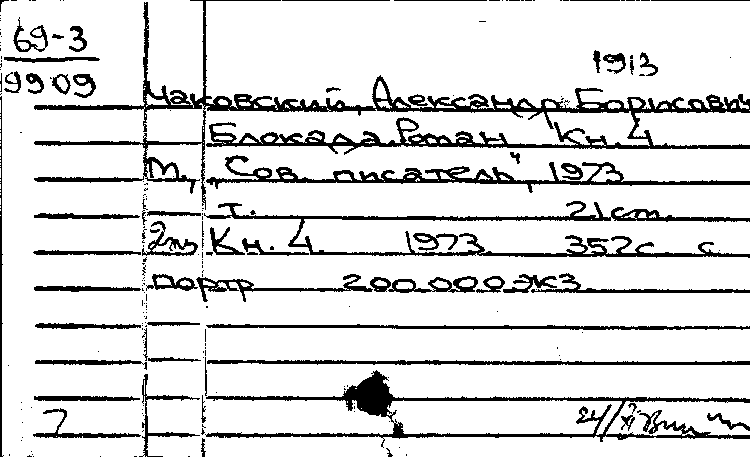 69-3
9909
1913
Чаковский, Александр Борисович
Блокада. Роман Кн. 4
М., "Сов. писатель", 1973
т. 21 cm.
2 т. Кн. 4. 1973 352 с с
портр 200.000 экз.
7 24/XI